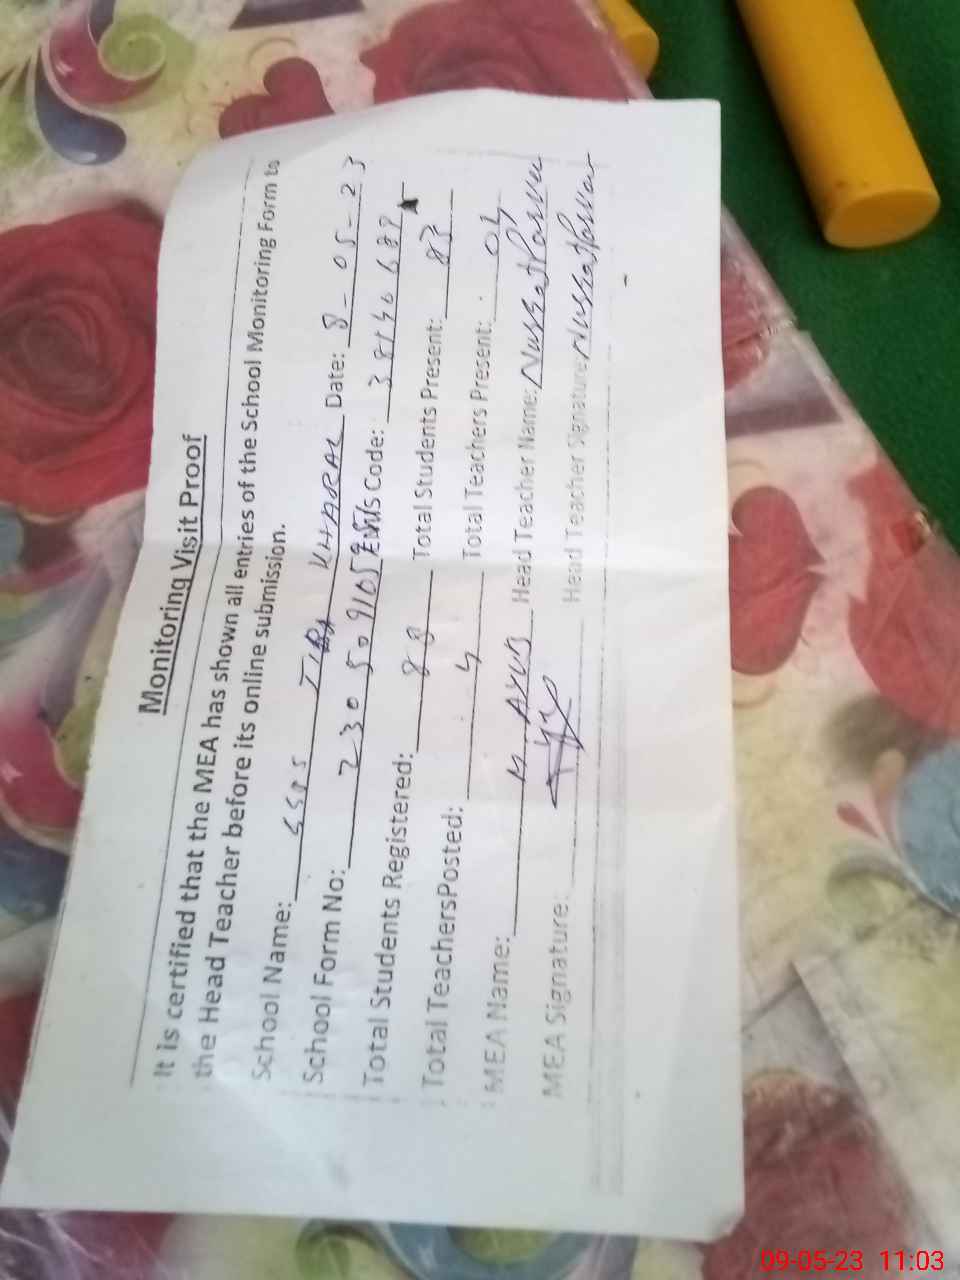 Monitoring Visit Proof
It is certified that the MEA has shown all entries of the School Monitoring Form to
the Head Teacher before its online submission.
School Name: KHARAL Date: 8-05-23
School Form No: 230509105 Emis Code:
Total Students Registered: 88 Total Students Present: 83
Total TeachersPosted: 4 Total Teachers Present: 04
MEA Name: M AYUB Head Teacher Name:
MEA Signature: Head Teacher Signature:
09-05-23 11:03